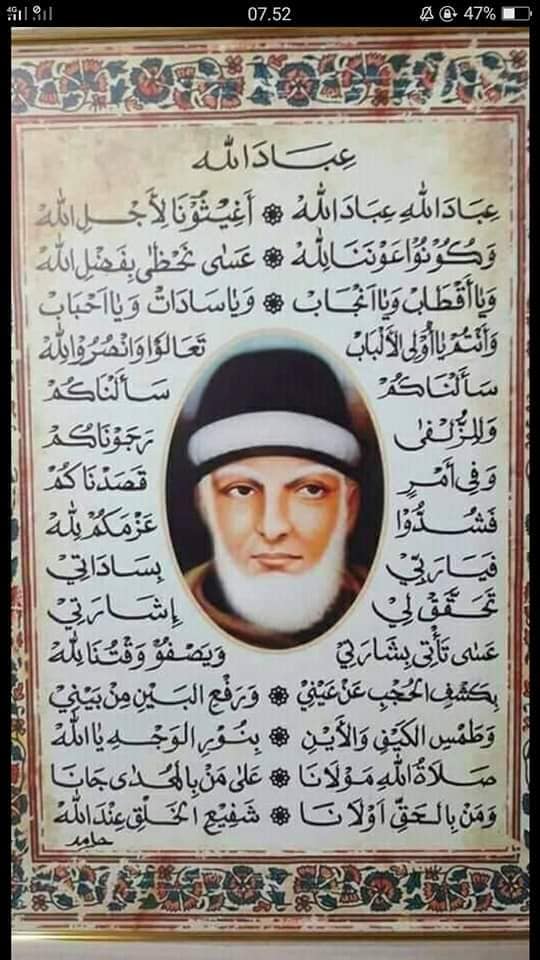 4G 07.52 47%
عِبَادَ الله
عِبَادَ اللهِ عِبَادَ اللهْ ۞ أَغِيثُوْنَا لِأَجْلِ اللهْ
وَكُوْنُوْا عَوْنَنَا لِلهْ ۞ عَسَى نَحْظَى بِفَضْلِ اللهْ
وَيَا أَقْطَابْ وَيَا اَنْجَابْ ۞ وَيَا سَادَاتْ وَيَا اَحْبَابْ
وَأَنْتُمْ يَا أُولِى الأَلْبَابْ تَعَالَوْا وَانْصُرُوْا لِلهْ
سَأَلْنَاكُمْ سَأَلْنَاكُمْ
وَلِلزُّلْفَى رَجَوْنَاكُمْ
وَفِي أَمْرٍ قَصَدْنَاكُمْ
فَشُدُّوْا عَزْمَكُمْ لِلهْ
فَيَارَبِّي بِسَادَاتِي
تَحَقَّقْ لِي إِشَارَتِي
عَسَى تَأْتِي بِشَارَتِي وَيَصْفُوْ وَقْتُنَا لِلهْ
بِكَشْفِ الحُجْبِ عَنْ عَيْنِيْ ۞ وَرَفْعِ البَيْنِ مِنْ بَيْنِيْ
وَطَمْسِ الكَيْفِ وَالأَيْنِ ۞ بِنُوْرِ الوَجْهِ يَا اللهْ
صَلَاةُ اللهِ مَوْلَانَا ۞ عَلَى مَنْ بِالهُدَى جَانَا
وَمَنْ بِالحَقِّ اَوْلَانَا ۞ شَفِيْعِ الخَلْقِ عِنْدَ اللهْ
حامد